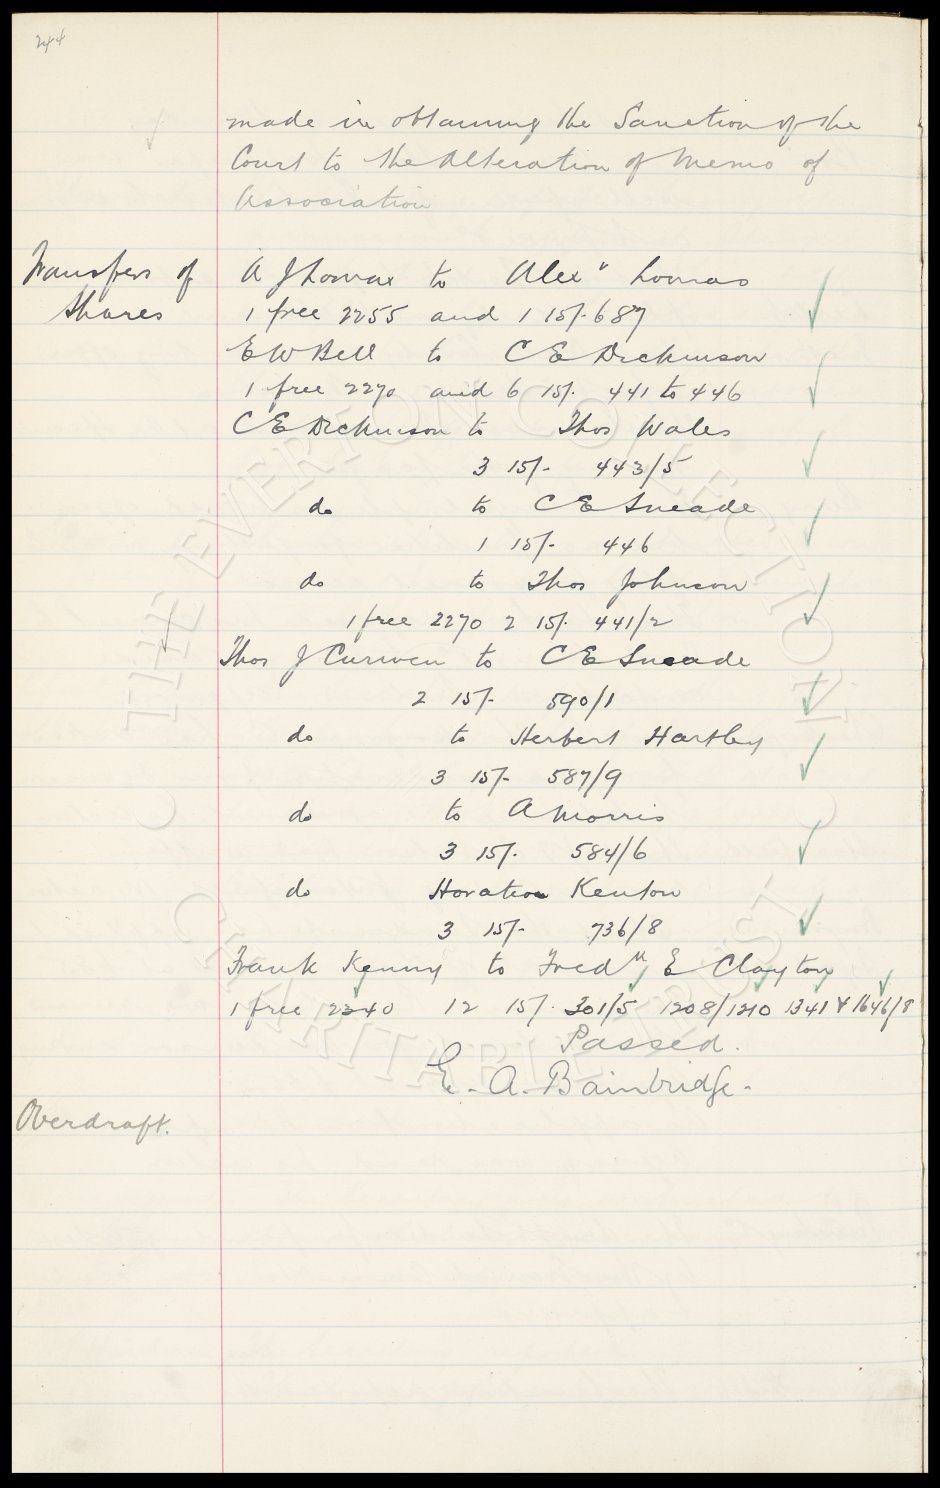 244
made in obtaining the Sanction of the
Court to the Alteration of Memo of
Association
Transfers of
Shares
A J Lomax to Alexr Lomas
1 free 2255 and 1 15/- 687
E W Bell to C E Dickinson
1 free 2270 and 6 15/- 441 to 446
C E Dickinson to Thos Wales
3 15/- 443/5
do to C E Sneade
1 15/- 446
do to Thos Johnson
1 free 2270 2 15/- 441/2
Thos J Curwen to C E Sneade
2 15/- 590/1
do to Herbert Hartley
3 15/- 587/9
do to A Morris
3 15/- 584/6
do Horation Kenton
3 15/- 736/8
Frank Kenny to Fredk E Clayton
1 free 2340 12 15/- 301/5 1208/1210 1341 & 1646/8
Passed.
E. A. Bainbridge.
Overdraft.
THE EVERTON COLLECTION
CHARITABLE TRUST